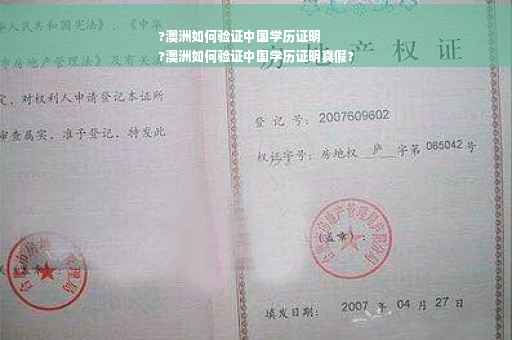 ?澳洲如何验证中国学历证明
?澳洲如何验证中国学历证明真假?
人民共和国宪法》
市房地产管理法》及有关
定，对权利人申请登记本证所
审查属实，准予登记，特发此
房地产权证
登记号：2007609602
权证字号：房地权 庐 字第 065042 号
(盖章)：
填发日期： 2007 年 04 月 27 日